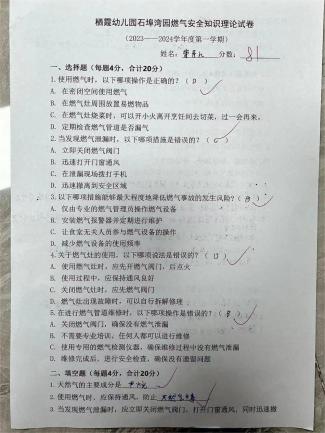 栖霞幼儿园石埠湾园燃气安全知识理论试卷
(2023——2024学年度第一学期)
姓名: 分数: 81
一、选择题（每题4分，合计20分）
1.使用燃气时，以下哪项操作是正确的？（ D ）
A. 在密闭空间使用燃气
B. 在燃气灶周围放置易燃物品
C. 在燃气灶烧菜时，可以开小火离开烹饪间去切菜，过一会再来。
D. 定期检查燃气管道是否漏气
2.当发现燃气泄漏时，以下哪项措施是错误的？（ C ）
A. 立即关闭燃气阀门
B. 迅速打开门窗通风
C. 在泄漏现场拨打手机
D. 迅速撤离到安全区域
3.以下哪项措施能够最大程度地降低燃气事故的发生风险？（ B ）
A. 仅由专业的燃气管理员操作燃气设备
B. 安装燃气报警器并定期进行维护
C. 让食堂无关人员参与燃气设备的操作
D. 减少燃气设备的使用频率
4.关于燃气灶的使用，以下哪项说法是错误的？（ D ）
A. 使用燃气灶时，应先开燃气阀门，后点火
B. 使用过程中，应保持通风良好
C. 关闭燃气灶时，应先燃气阀门
D. 燃气灶出现故障时，可以自行拆解修理
5.在进行燃气管道维修时，以下哪项操作是错误的？（ B ）
A. 关闭燃气阀门，确保没有燃气泄漏
B. 不需要专业培训，任何人都可以进行维修
C. 使用专用的燃气检测仪器，确保维修过程中没有燃气泄漏
D. 维修完成后，进行安全检查，确保没有遗留问题
二、填空题（每题4分，合计20分）
1.天然气的主要成分是 甲烷
2.使用燃气时，应保持通风，防止
3.当发现燃气泄漏时，应立即关闭燃气阀门，打开门窗通风，同时迅速撤